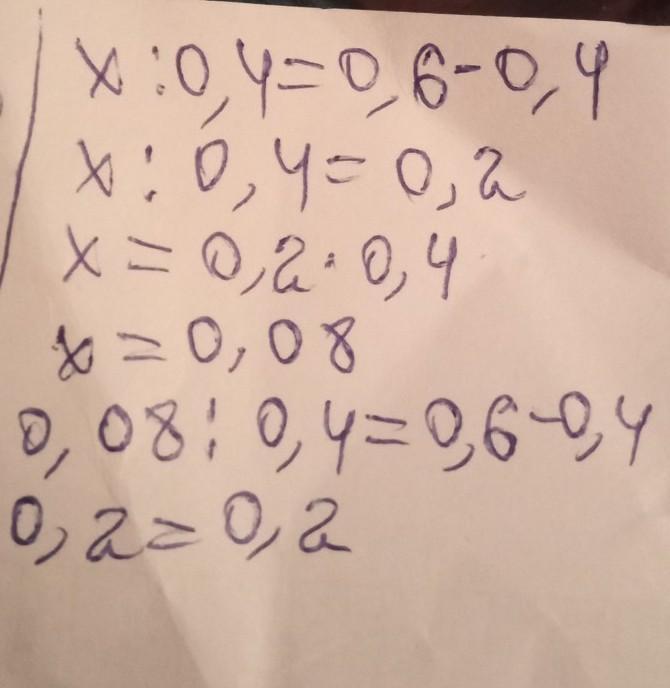 x:0,4=0,6-0,4
x:0,4=0,2
x=0,2·0,4
x=0,08
0,08:0,4=0,6-0,4
0,2=0,2